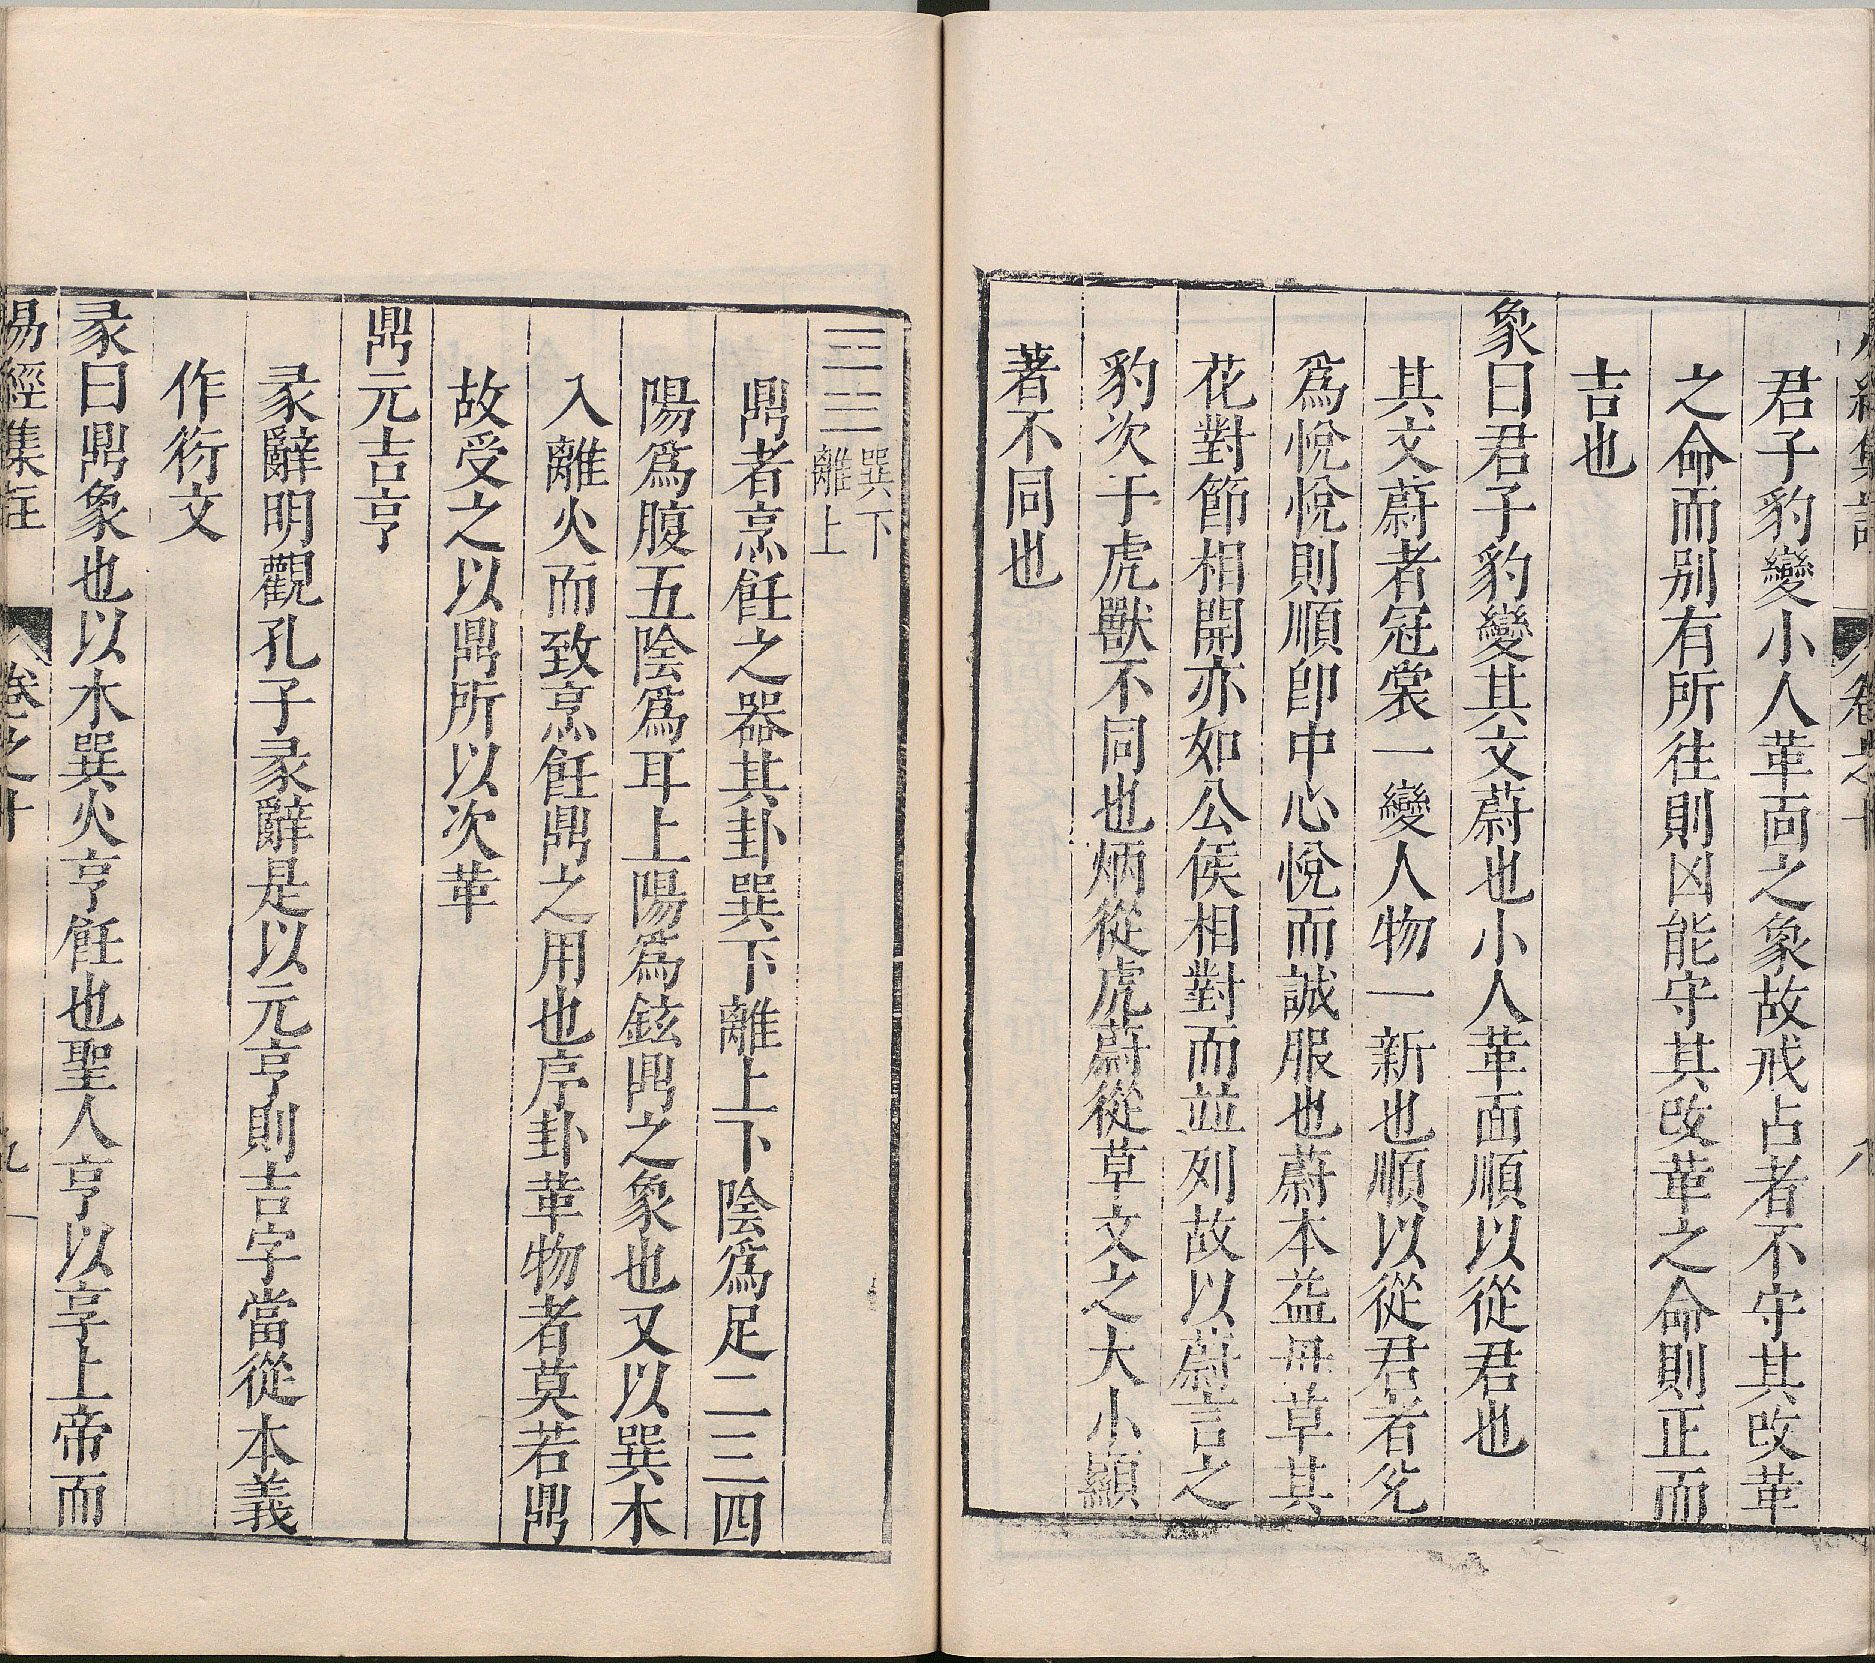 易經集註 卷之十 八
君子豹變小人革面之象故戒占者不守其改革
之命而别有所往則凶能守其改革之命則正而
吉也
象曰君子豹變其文蔚也小人革面順以從君也
其文蔚者冠裳一變人物一新也順以從君者兊
爲悅悅則順卽中心悅而誠服也蔚本益母草其
花對節相開亦如公侯相對而並列故以蔚言之
豹次于虎獸不同也炳從虎蔚從草文之大小顯
著不同也
巽下
離上
鼎者烹飪之器其卦巽下離上下陰爲足二三四
陽爲腹五陰爲耳上陽爲鉉鼎之象也又以巽木
入離火而致烹飪鼎之用也序卦革物者莫若鼎
故受之以鼎所以次革
鼎元吉亨
彖辭明觀孔子彖辭是以元亨則吉字當從本義
作衍文
彖曰鼎象也以木巽火亨飪也聖人亨以享上帝而
易經集註 卷之十 九